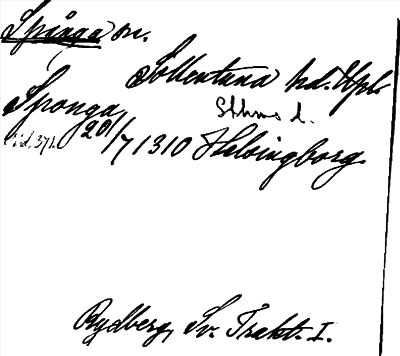 Spånga sn.
Sollentuna hd. Upl.
Sthms l.
Sponga, 20/7 1310 Helsingborg.
sid. 371.
Rydberg, Sv. Trakt. I.